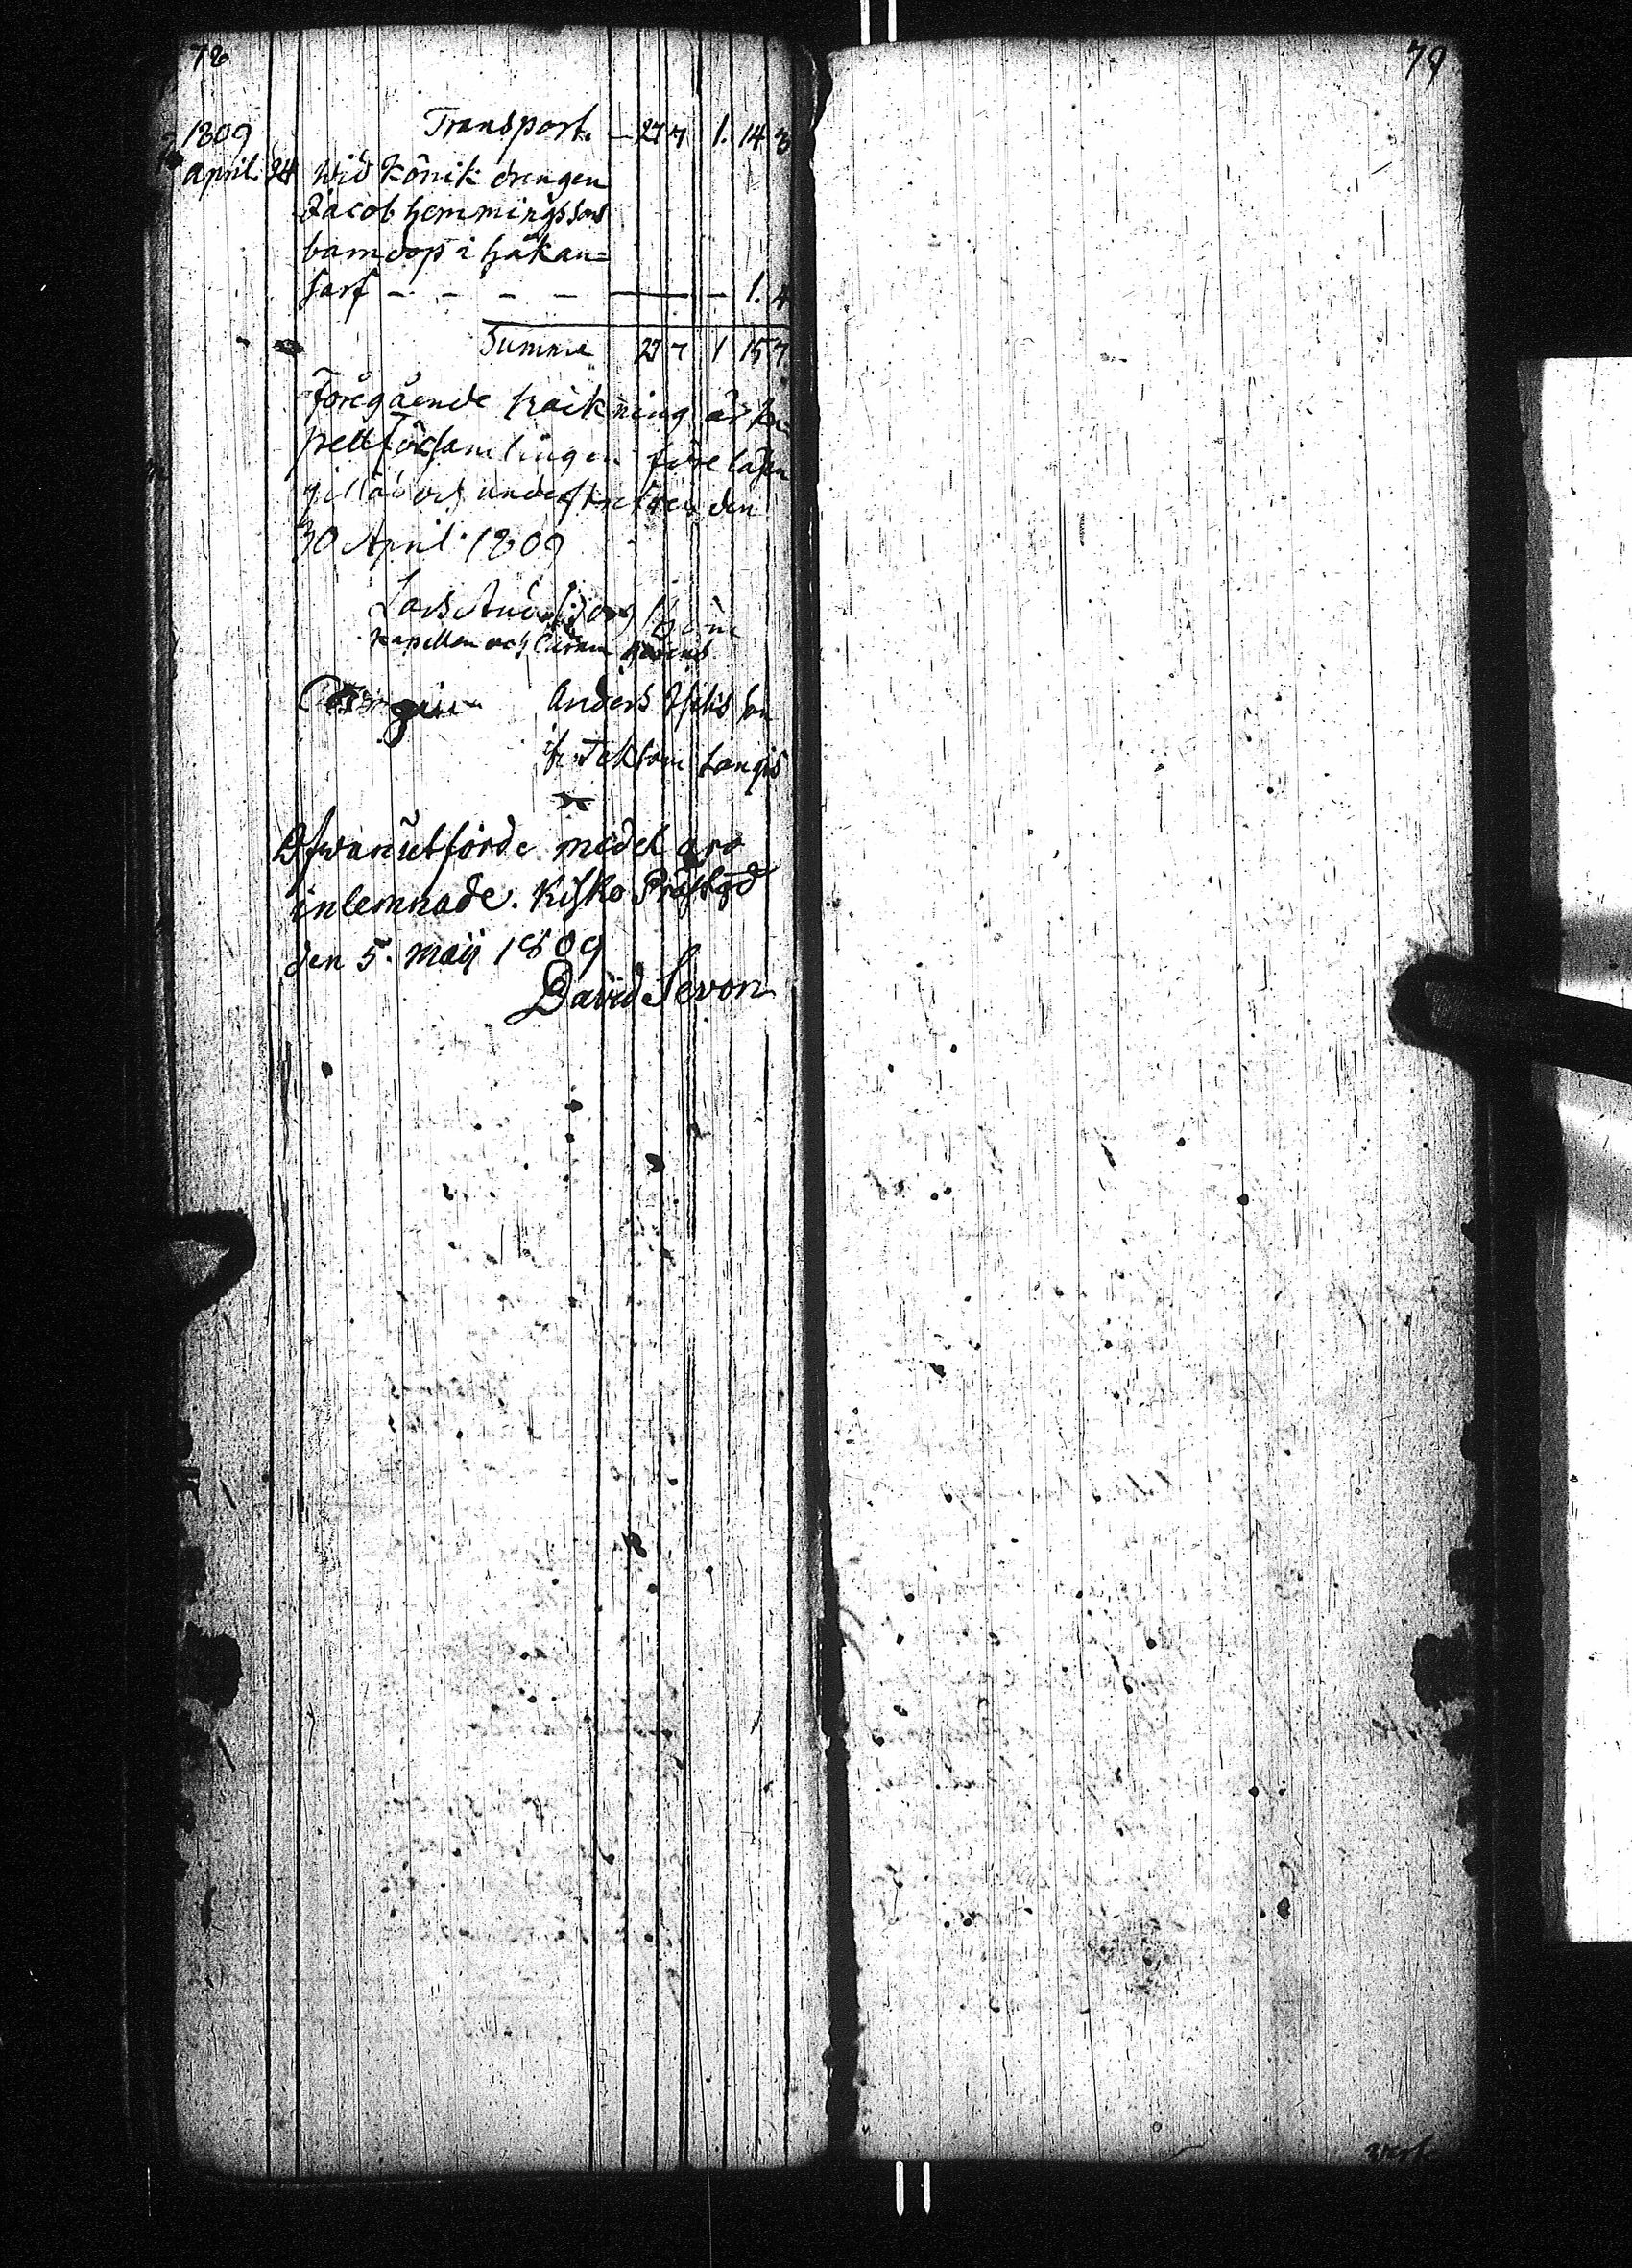 78
1809 Transport. — 27 7 1. 14 3
April 24 Wid Könik drengen
Jacob Hemmingssons
barndop i Håkan=
sarf - - - - — - 1. 4
Summa 27 7 1 15 7
Föregående Räkning är Ka-
pellförsamlingen föreläsen
gillad och underskrefwen den
30 April 1809
Lars
Kapellan och
Anders son
Långis
Ofwanutförde medel äro
inlemnade. Kisko Prästgd
den 5. Maij 1809
David Sevon
79